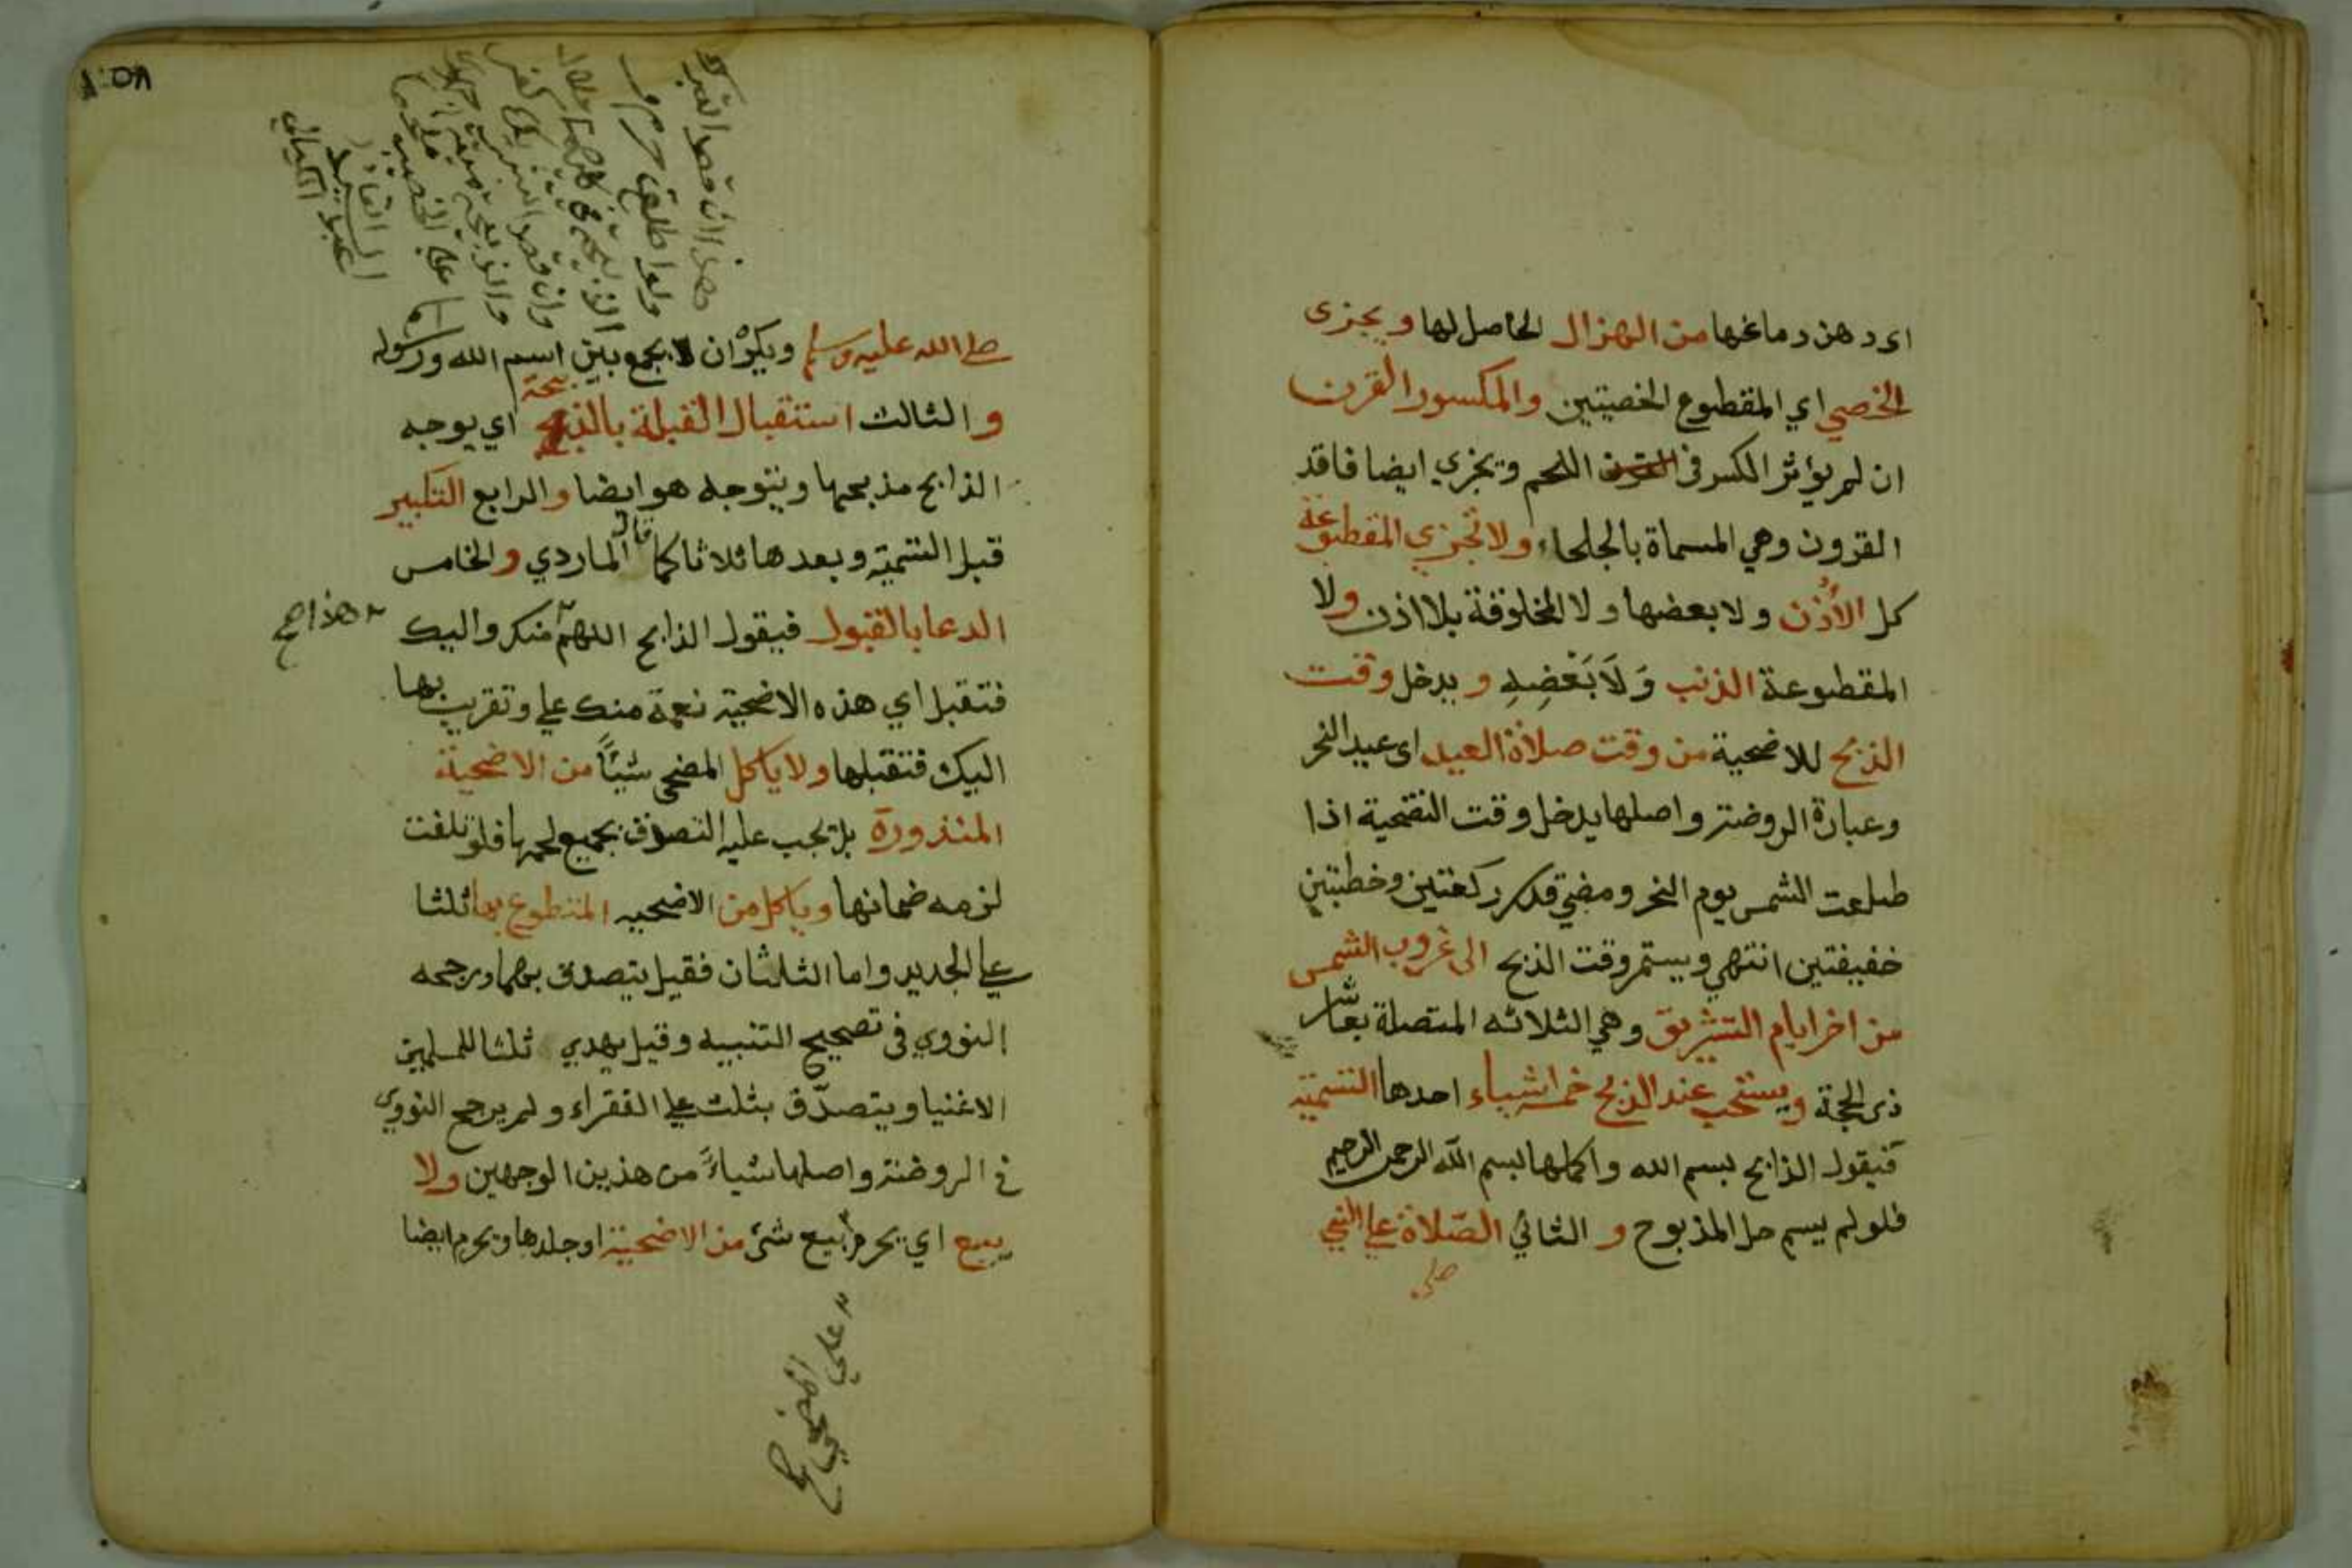 اى دهن دماغها من الهزال الحاصل لها ويجزى
الخصي اي المقطوع الخصيتين والمكسور القرن
ان لم يؤثر الكسر فى اللحم ويجزي ايضا فاقد
القرون وهي المسماة بالجلحاء ولا تجزي المقطوعة
كل الأذن ولا بعضها ولا المخلوقة بلا اذن ولا
المقطوعة الذنب وَلَا بَعْضِهِ و يدخل وقت
الذبح للاضحية من وقت صلاة العيد اى عيد النحر
وعبارة الروضة واصلها يدخل وقت التضحية اذا
طلعت الشمس يوم النحر ومضى قدر ركعتين وخطبتين
خفيفتين انتهي ويستمر وقت الذبح الى غروب الشمس
من اخر ايام التشريق وهي الثلاثه المتصلة بعاشر
ذى الحجة ويستحب عند الذبح خمسة اشياء احدها التسمية
فيقول الذابح بسم الله واكملها بسم الله الرحمن الرحيم
فلو لم يسم حل المذبوح و الثاني الصّلاة على النبي
صلى
٨٥
صلى الله عليه وسلم ويكره ان يجمع بين اسم الله ورسوله
والثالث استقبال القبلة بالذبيحة اي يوجه
الذابح مذبحها ويتوجه هو ايضا والرابع التكبير
قبل التسمية وبعدها ثلاثا كما قال الماردي والخامس
الدعا بالقبول فيقول الذابح اللهمّ منك واليك
هذا صح
فتقبل اي هذه الاضحية نعمة منك علي وتقربت بها
اليك فتقبلها ولا ياكل المضحي شيئاً من الاضحية
المنذورة بل يجب عليه التصدق بجميع لحمها فلو تلفت
لزمه ضمانها وياكل من الاضحيه المتطوع بها ثلثا
على الجديد واما الثلثان فقيل يتصدق بهما ورجحه
النووي فى تصحيح التنبيه وقيل يهدي ثلثا للمسلمين
الاغنيا ويتصدّق بثلث على الفقراء ولم يرجح النووي
في الروضة واصلها شياءً من هذين الوجهين ولا
يبيع اي يحرم بيع شئ من الاضحية او جلدها ويحرم ايضا